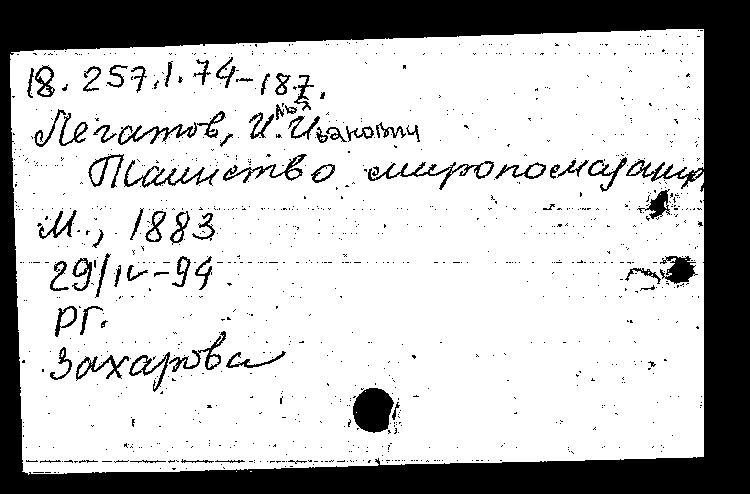 18.257.1.74-187.
Легатов, Илья Иванович
Таинство миропомазания
М., 1883
29/IV-94
РГ.
Захарова